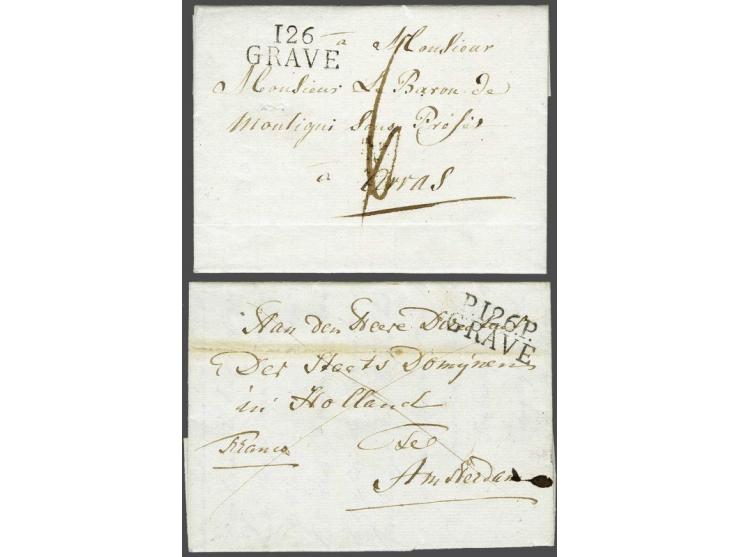 126
GRAVE
à Monsieur
Monsieur Le Baron de
Montigni Sous Préfet
à Arras
P.126.P.
GRAVE
Aan den Heere
Der Staats Domijnen
in Holland
Franco Te
Amsterdam